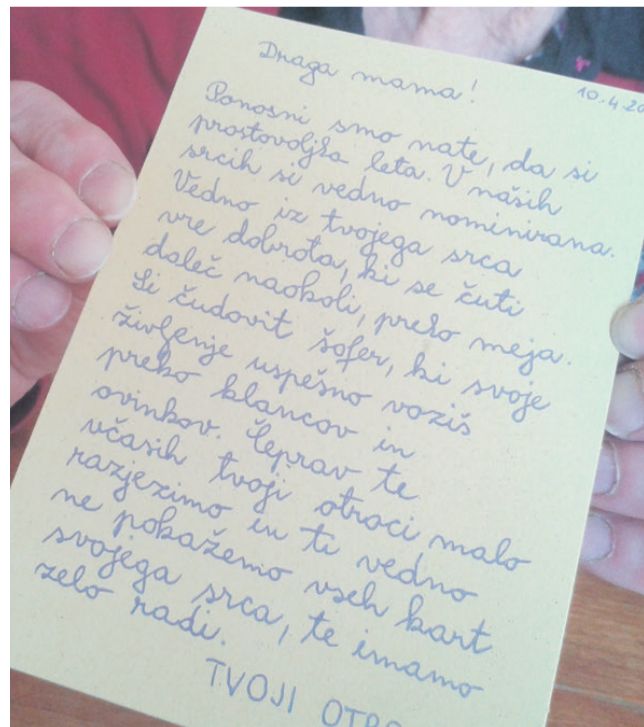 Draga mama!
10.4.20
Ponosni smo nate, da si
prostovoljka leta. V naših
srcih si vedno nominirana.
Vedno iz tvojega srca
vre dobrota, ki se čuti
daleč naokoli, preko meja.
Si čudovit šofer, ki svoje
življenje uspešno voziš
preko klancov in
ovinkov. Čeprav te
včasih tvoji otroci malo
razjezimo in ti vedno
ne pokažemo vseh kart
svojega srca, te imamo
zelo radi.
TVOJI OTRO